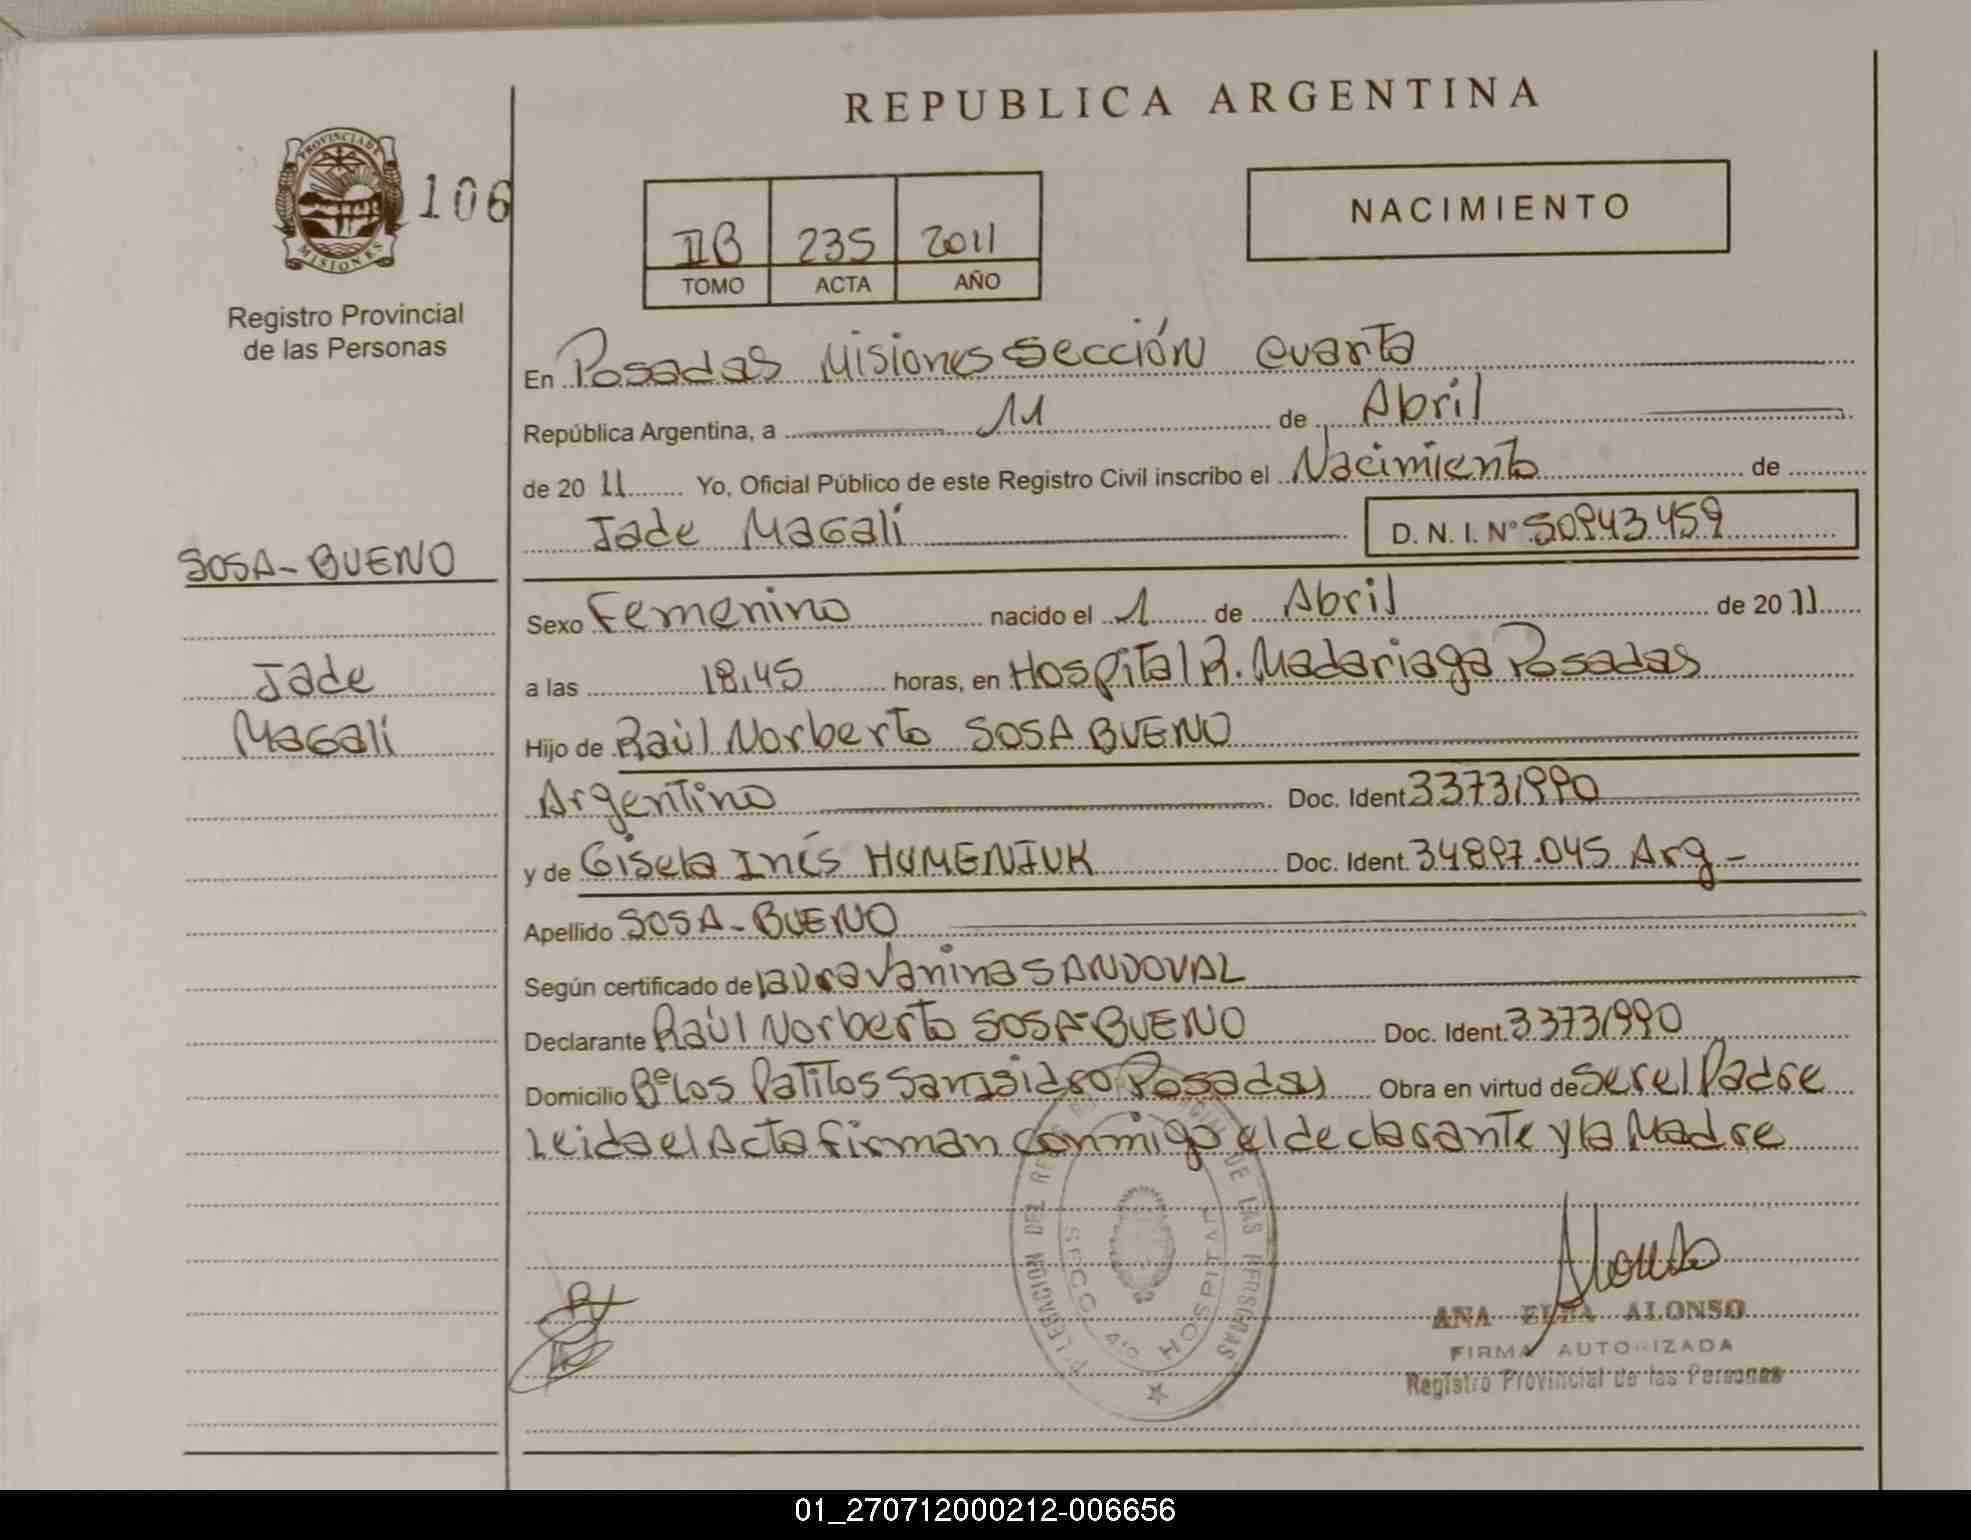 REPUBLICA ARGENTINA
PROVINCIA DE
MISIONES
106
Registro Provincial
de las Personas
IIB 235 2011
TOMO ACTA AÑO
NACIMIENTO
En Posadas Misiones sección cuarta
República Argentina, a 11 de Abril
de 2011 Yo, Oficial Público de este Registro Civil inscribo el Nacimiento de
Jade Magalí D. N. I. N° 50943459
SOSA-BUENO
Jade
Magalí
Sexo Femenino nacido el 1 de Abril de 2011
a las 18,45 horas, en Hospital R. Madariaga Posadas
Hijo de Raúl Norberto SOSA BUENO
Argentino Doc. Ident 33731990
y de Gisela Inés HUMENIUK Doc. Ident. 34897.045 Arg-
Apellido SOSA-BUENO
Según certificado de laura Vanina SANDOVAL
Declarante Raúl Norberto SOSA-BUENO Doc. Ident. 33731990
Domicilio B° Los Patitos San isidro Posadas Obra en virtud de Ser el Padre
Leida el Acta firman conmigo el declarante y la Madre
DEL DE LAS PERSONAS
SECC 4° HOSPITAL
Alonso
ANA ELBA ALONSO
FIRMA AUTORIZADA
Registro Provincial de las Personas
01_270712000212-006656